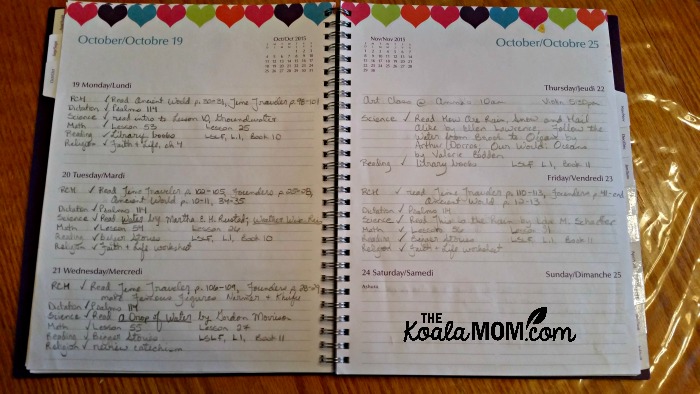 October/Octobre 19
Oct/Oct 2015
19 Monday/Lundi
RCH ✓ Read Ancient World p. 30-31, Time Traveler p. 98-101
Dictation ✓ Psalms 114
Science ✓ read intro to Lesson 10, Groundwater
Math ✓ Lesson 53 Lesson 25
Reading ✓ Library books LSLF, L1, Book 10
Religion ✓ Faith + Life, ch 4
20 Tuesday/Mardi
RCH ✓ Read Time Traveler p. 102-105, Founders p. 25-28,
Ancient World p. 10-11, 34-35
Dictation ✓ Psalms 114
Science ✓ Read Water by Martha E. H. Rustad; Weather Water
Math ✓ Lesson 54 Lesson 26
Reading ✓ Stories LSLF, L1, Book 10
Religion ✓ Faith + Life worksheet
21 Wednesday/Mercredi
RCH ✓ Read Time Traveler p. 106-109, Founders p. 28-29
make Famous Figures Narmer + Khufu
Dictation ✓ Psalms 114
Science ✓ Read A Drop of Water by Gordon Morrison
Math ✓ Lesson 55 Lesson 27
Reading ✓ Stories LSLF, L1, Book 11
Religion ✓ review catechism
Nov/Nov 2015
October/Octobre 25
Thursday/Jeudi 22
Art Class @ 10am 5:30pm
Science ✓ Read How Are Rain, Snow and Hail
Alike by Ellen Lawrence, Follow the
Water from Brook to Ocean by
Arthur Dorros, Our World: Oceans
by Valerie Bodden
Reading ✓ Library books LSLF, L1, Book 11
Friday/Vendredi 23
RCH ✓ read Time Traveler p. 110-113, Founders p. 41-end
Ancient World p. 12-13
Dictation ✓ Psalms 114
Science ✓ Read This is the Rain by Lola M. Schaefer
Math ✓ Lesson 56
Reading ✓ Stories LSLF, L1, Book 11
Religion ✓ Faith + Life worksheet
24 Saturday/Samedi Sunday/Dimanche 25
Ashura
THE
KoalaMOM.com